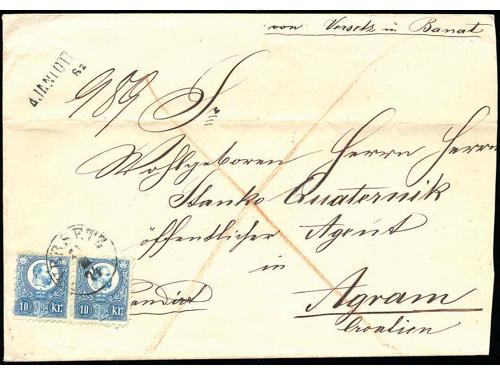 von Versetz in Banat
AJANLOTT
62
989 Sr
Wohlgeboren Herrn Herrn
Stanko Quaternik
öffentlicher Agent
in
Agram
Croatien
VERSETZ
10 Kr. 10 Kr.